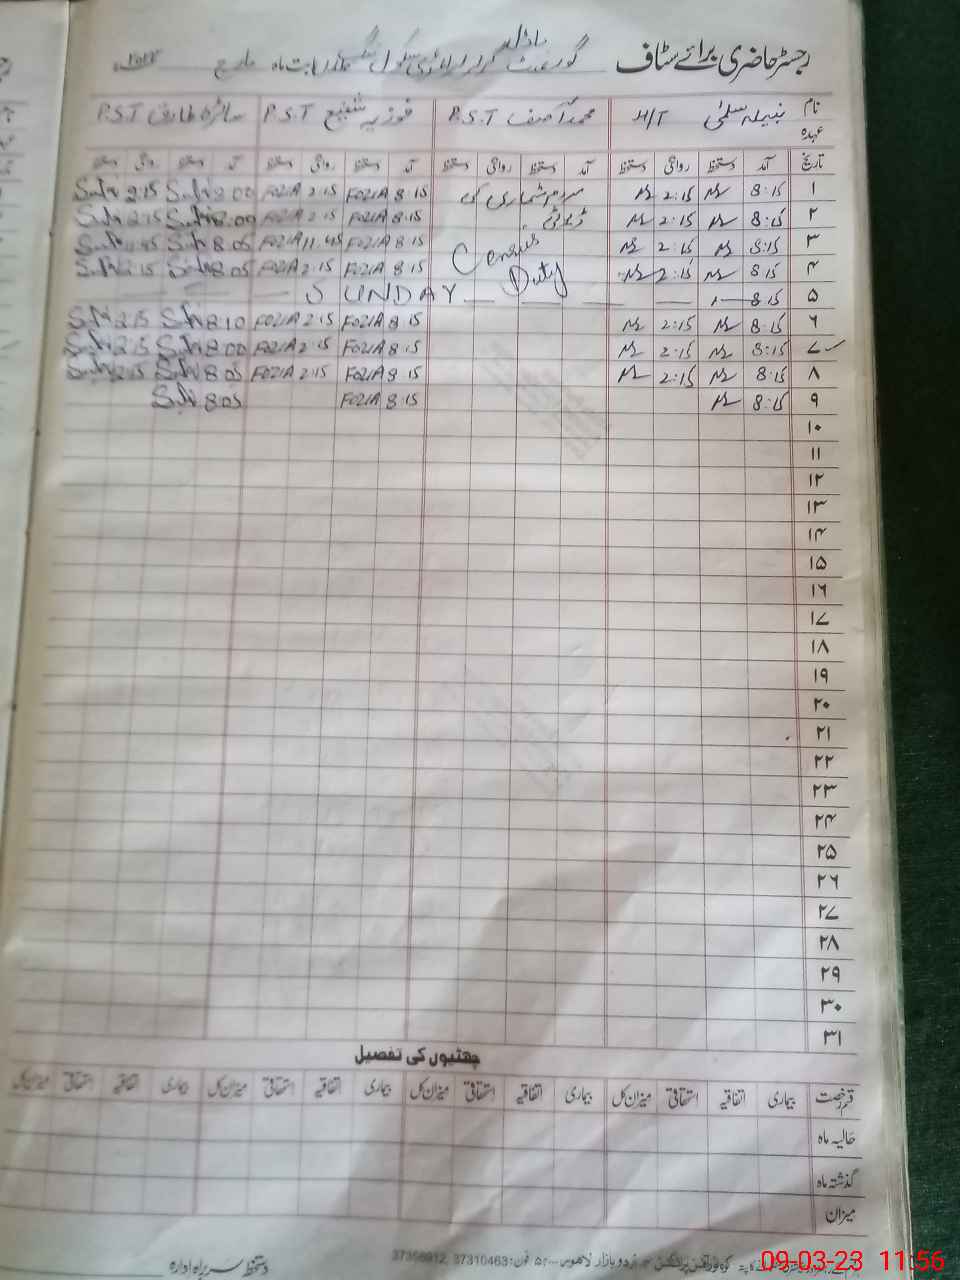 رجسٹر حاضری برائے سٹاف گورنمنٹ ماڈل پرائمری سکول بابت ماہ مارچ ۲۰۲۳ء
نام نبیلہ سلمیٰ H/T محمد آصف P.S.T فوزیہ شفیع P.S.T سائرہ طارق P.S.T
عہدہ
تاریخ آمد دستخط روانگی دستخط آمد دستخط روانگی دستخط آمد دستخط روانگی دستخط آمد دستخط روانگی دستخط
۱ 8:15 2:15 مردم شماری کی FOZIA 8:15 FOZIA 2:15 8:00 2:15
۲ 8:15 2:15 ڈیوٹی FOZIA 8:15 FOZIA 2:15 8:00 2:15
۳ 8:15 2:15 Census FOZIA 8:15 FOZIA 11:45 8:05 11:45
۴ 8:15 2:15 Duty FOZIA 8:15 FOZIA 2:15 8:05 2:15
۵ 8:15 SUNDAY
۶ 8:15 2:15 FOZIA 8:15 FOZIA 2:15 8:10 2:15
۷ 8:15 2:15 FOZIA 8:15 FOZIA 2:15 8:00 2:15
۸ 8:15 2:15 FOZIA 8:15 FOZIA 2:15 8:05 2:15
۹ 8:15 FOZIA 8:15 8:05
۱۰
۱۱
۱۲
۱۳
۱۴
۱۵
۱۶
۱۷
۱۸
۱۹
۲۰
۲۱
۲۲
۲۳
۲۴
۲۵
۲۶
۲۷
۲۸
۲۹
۳۰
۳۱
چھٹیوں کی تفصیل
قسم رخصت بیماری اتفاقیہ استحقاقی میزان کل بیماری اتفاقیہ استحقاقی میزان کل بیماری اتفاقیہ استحقاقی میزان کل بیماری اتفاقیہ استحقاقی میزان کل
حالیہ ماہ
گذشتہ ماہ
میزان
اردو بازار لاہور فون: 37310463
دستخط سربراہ ادارہ
09-03-23 11:56